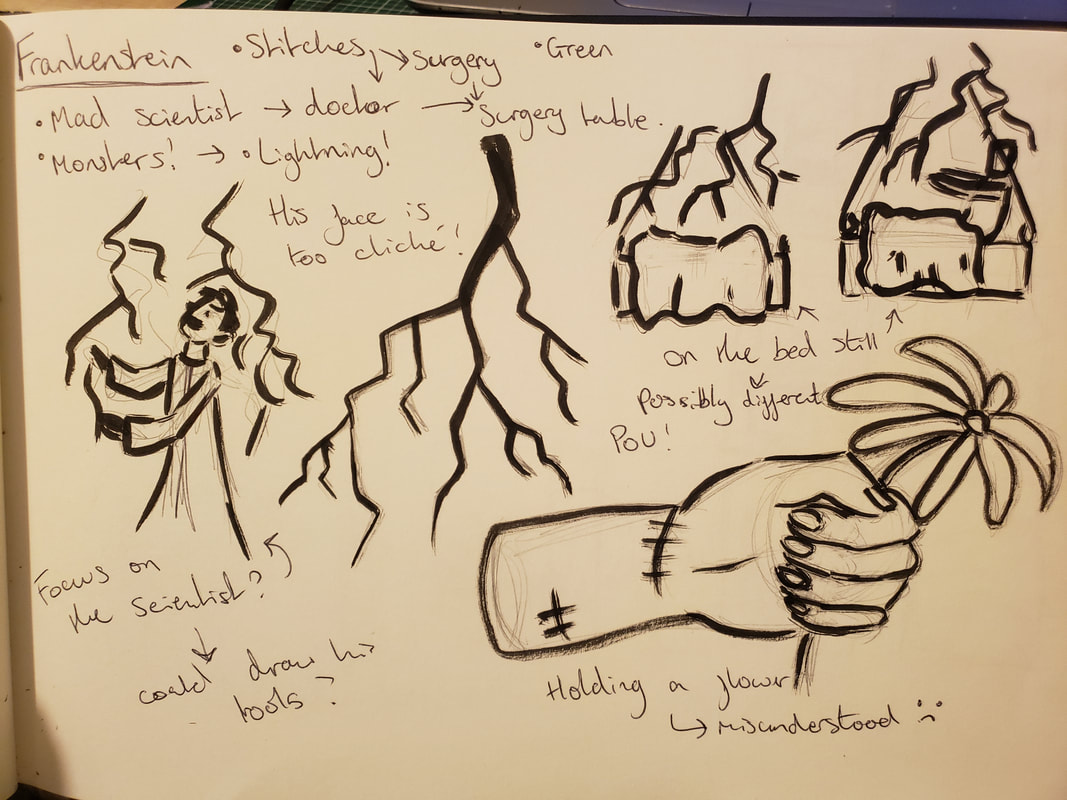 Frankenstein
• Stitches → Surgery
• Green
• Mad scientist → doctor → Surgery table.
• Monsters! → • Lightning!
His face is
too cliché!
on the bed still
Possibly different
POV!
Focus on
the scientist?
could draw his
tools?
Holding a flower
↳ misunderstood :(